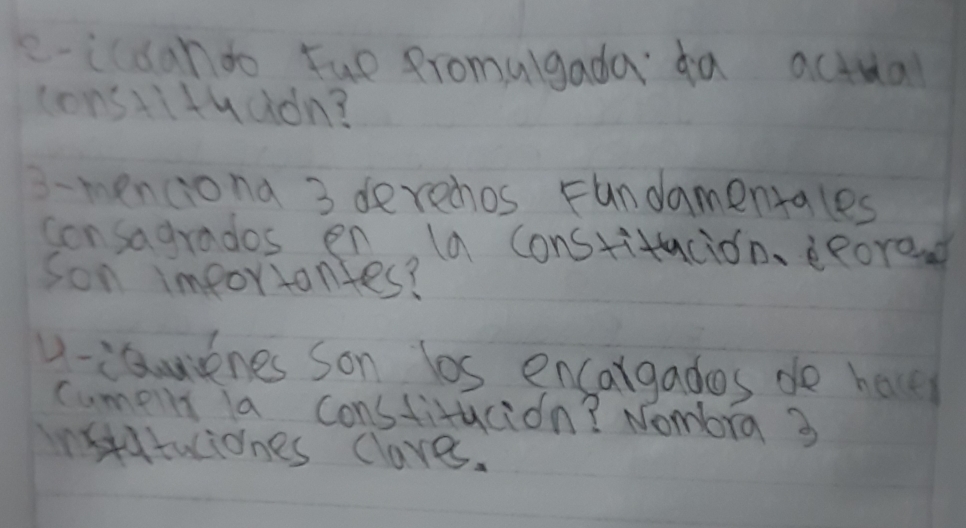 2-¿Cuándo fue Promulgada la actual
constitución?
3-menciona 3 derechos Fundamentales
consagrados en la constitución. ¿Porque
son importantes?
4-¿Quiénes son los encargados de hacer
Cumplir la constitución? Nombra 3
instituciones claves.